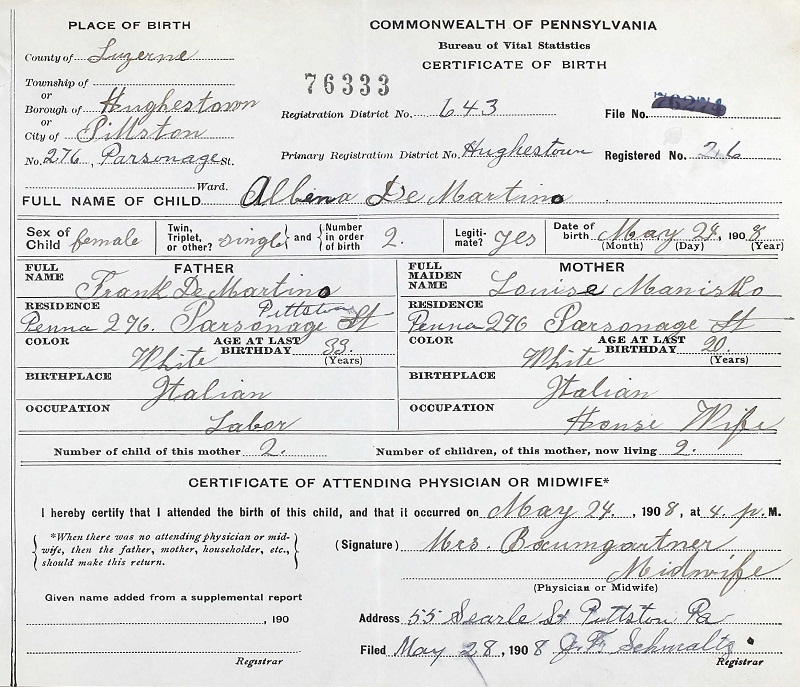 PLACE OF BIRTH
COMMONWEALTH OF PENNSYLVANIA
Bureau of Vital Statistics
CERTIFICATE OF BIRTH
County of Luzerne
Township of
or
Borough of Hughestown
or
City of Pittston
No. 276, Parsonage St.
Ward.
76333
Registration District No. 643
File No.
Primary Registration District No. Hughestown
Registered No. 26
FULL NAME OF CHILD Albena De Martino
Sex of Child female
Twin, Triplet, or other? single and Number in order of birth 2.
Legitimate? yes
Date of birth May 24, 1908
(Month) (Day) (Year)
FATHER
FULL NAME Frank De Martino
RESIDENCE Pittston
Penna 276. Parsonage St
COLOR White
AGE AT LAST BIRTHDAY 33 (Years)
BIRTHPLACE Italian
OCCUPATION Labor
MOTHER
FULL MAIDEN NAME Louise Manisko
RESIDENCE
Penna 276 Parsonage St
COLOR White
AGE AT LAST BIRTHDAY 20. (Years)
BIRTHPLACE Italian
OCCUPATION House Wife
Number of child of this mother 2.
Number of children, of this mother, now living 2.
CERTIFICATE OF ATTENDING PHYSICIAN OR MIDWIFE*
I hereby certify that I attended the birth of this child, and that it occurred on May 24., 1908, at 4. p. M.
*When there was no attending physician or mid-
wife, then the father, mother, householder, etc.,
should make this return.
(Signature) Mrs. Baumgartner
Midwife
(Physician or Midwife)
Given name added from a supplemental report
, 190
Registrar
Address 55 Searle St Pittston Pa
Filed May 28, 1908 J. F. Schmaltz
Registrar